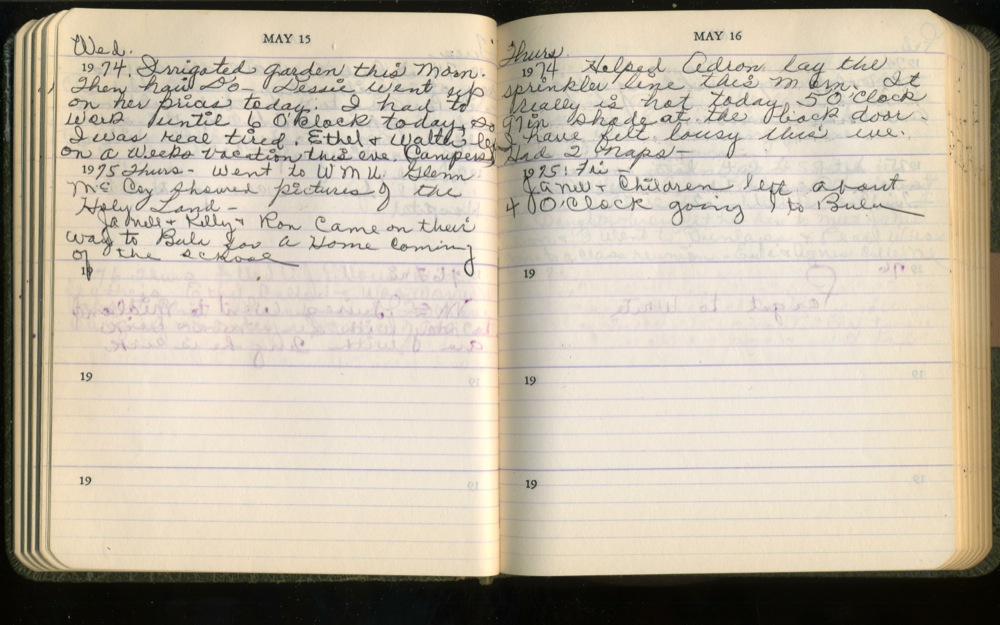 MAY 15
Wed.
1974. Irrigated garden this Morn.
Then hair Do - Lessie went up
on her prices today. I had to
work until 6 O'Clock today, so
I was real tired. Ethel & Walter
on a weeks vacation this eve. Campers
1975 Thurs - Went to W M U. Glenn
Mc Coy showed pictures of the
Holy Land -
Janell & Kelly & Ron Came on their
way to Bula for a Home coming
of the school
19
19
19
MAY 16
Thurs
1974 Helped Adron lay the
sprinkler line this morn. It
really is hot today 5 O'Clock
in shade at the Back door.
I have felt lousy this eve.
Had 2 naps -
1975: Fri -
Janell & Children left about
4 O'Clock going to Bula
19
19
19